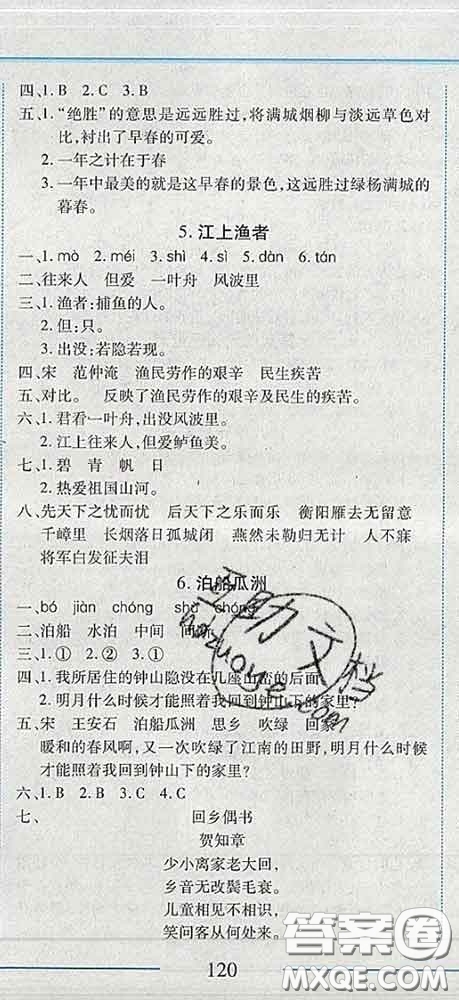 四、1.B 2.C 3.B
五、1.“绝胜”的意思是远远胜过,将满城烟柳与淡远草色对
比,衬出了早春的可爱。
2.一年之计在于春
3.一年中最美的就是这早春的景色,这远胜过绿杨满城的
暮春。
5.江上渔者
一、1.mò 2.méi 3.shì 4.sì 5.dàn 6.tán
二、往来人 但爱 一叶舟 风波里
三、1.渔者:捕鱼的人。
2.但:只。
3.出没:若隐若现。
四、宋 范仲淹 渔民劳作的艰辛 民生疾苦
五、对比。 反映了渔民劳作的艰辛及民生的疾苦。
六、1.君看一叶舟,出没风波里。
2.江上往来人,但爱鲈鱼美。
七、1.碧 青 帆 日
2.热爱祖国山河。
八、先天下之忧而忧 后天下之乐而乐 衡阳雁去无留意
千嶂里 长烟落日孤城闭 燕然未勒归无计 人不寐
将军白发征夫泪
6.泊船瓜洲
一、bó jiàn chóng shù chóng
二、泊船 水泊 中间 间断
三、1.① 2.① 3.①
四、1.我所居住的钟山隐没在几座山峦的后面
2.明月什么时候才能照着我回到钟山下的家里?
五、宋 王安石 泊船瓜洲 思乡 吹绿 回家
暖和的春风啊,又一次吹绿了江南的田野,明月什么时候
才能照着我回到钟山下的家里?
六、1.B 2.B 3.C 4.C
七、 回乡偶书
贺知章
少小离家老大回,
乡音无改鬓毛衰。
儿童相见不相识,
笑问客从何处来。
120
助文档
答案圈
MXQE.COM